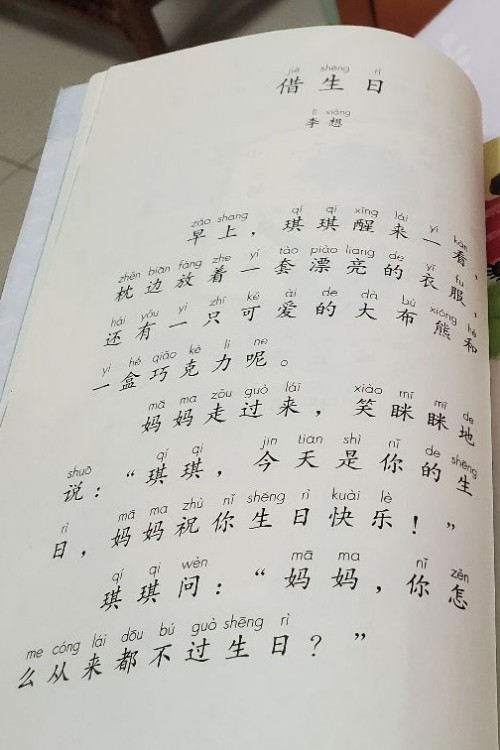 jiè shēng rì
借生日
lǐ xiǎng
李想
zǎo shang qí qi xǐng lái yí kàn
早上，琪琪醒来一看，
zhěn biān fàng zhe yí tào piào liang de yī fu
枕边放着一套漂亮的衣服，
hái yǒu yì zhī kě ài de dà bù xióng hé
还有一只可爱的大布熊和
yì hé qiǎo kè lì ne
一盒巧克力呢。
mā ma zǒu guò lái xiào mī mī de
妈妈走过来，笑眯眯地
shuō qí qi jīn tiān shì nǐ de shēng
说：“琪琪，今天是你的生
rì mā ma zhù nǐ shēng rì kuài lè
日，妈妈祝你生日快乐！”
qí qi wèn mā ma nǐ zěn
琪琪问：“妈妈，你怎
me cóng lái dōu bú guò shēng rì
么从来都不过生日？”